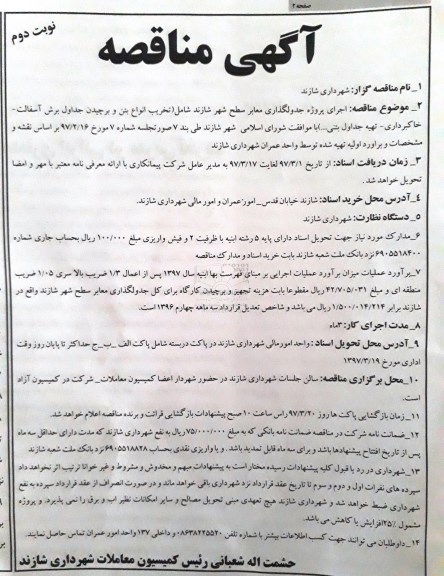 صفحه ۲
نوبت دوم
آگهی مناقصه
۱_نام مناقصه گزار: شهرداری شازند
۲_ موضوع مناقصه: اجرای پروژه جدولگذاری معابر سطح شهر شازند شامل(تخریب انواع بتن و برچیدن جداول برش آسفالت-
خاکبرداری- تهیه جداول بتنی...)با موافقت شورای اسلامی شهر شازند طی بند ۷ صورتجلسه شماره ۷ مورخ ۹۷/۲/۱۶ بر اساس نقشه و
مشخصات و براورد اولیه تهیه شده توسط واحد عمران شهرداری شازند
۳_ زمان دریافت اسناد: از تاریخ ۹۷/۳/۱ لغایت ۹۷/۳/۱۷ به مدیر عامل شرکت پیمانکاری با ارائه معرفی نامه معتبر با مهر و امضا
تحویل خواهد شد.
۴_آدرس محل خرید اسناد: شازند خیابان قدس_امور؛عمران و امور مالی شهرداری شازند.
۵_دستگاه نظارت: شهرداری شازند
۶_مدارک مورد نیاز جهت تحویل اسناد دارای پایه ۵ رشته ابنیه با ظرفیت ۲ و فیش واریزی مبلغ ۱۰۰/۰۰۰ ریال بحساب جاری شماره
۶۹۰۵۵۱۸۴۰۰ نزد بانک ملت شعبه شازند بابت خرید اسناد و مدارک مناقصه
۷_برآورد عملیات میزان برآورد عملیات اجرایی بر مبنای فهرست بها ابنیه سال ۱۳۹۷ پس از اعمال ۱/۳ ضریب بالا سری ۱/۰۵ ضریب
منطقه ای و مبلغ ۴۲/۷۰۵/۰۳۱ ریال مقطوعا بابت هزینه تجهیز و برچیدن کارگاه برای کل جدولگذاری معابر سطح شهر شازند واقع در
شازند برابر ۱/۵۰۰/۰۱۴/۲۱۴ ریال می باشد و شاخص تعدیل قرارداد سه ماهه چهارم ۱۳۹۶ است.
۸_ مدت اجرای کار: ۳ماه
۹_آدرس محل تحویل اسناد : واحد امورمالی شهرداری شازند در پاکت دربسته شامل پاکت الف_ب_ج حداکثر تا پایان روز وقت
اداری مورخ ۱۳۹۷/۳/۱۹
۱۰_محل برگزاری مناقصه: سالن جلسات شهرداری شازند در حضور شهردار اعضا کمیسیون معاملات_شرکت در کمیسیون آزاد
است.
۱۱_زمان بازگشایی پاکت ها روز ۹۷/۳/۲۰ راس ساعت ۱۰ صبح پیشنهادات بازگشایی قرائت و برنده مناقصه اعلام خواهد شد.
۱۲_ضمانت نامه شرکت در مناقصه ضمانت نامه بانکی که به مبلغ ۷۵/۰۰۰/۰۰۰ ریال به نفع شهرداری شازند که مدت دارای حداقل سه ماه
پس از تاریخ افتتاح پیشنهادها باشد و برای سه ماه قابل تمدید باشد. و یا واریزی نقدی بحساب ۶۹۰۵۵۱۸۸۲۸ نزد بانک ملت شعبه شازند
۱۳_شهرداری در رد یا قبول کلیه پیشنهادات رسیده مختار است به پیشنهادات مبهم و مخدوش و مشروط و غیر خوانا ترتیب اثر نخواهد داد
سپرده های نفرات اول و دوم و سوم تا تاریخ عقد قرارداد نزد شهرداری باقی خواهد ماند و در صورت انصراف از عقد قرارداد سپرده به نفع
شهرداری ضبط خواهد شد و شهرداری شازند هیچ تعهدی مبنی تحویل مصالح و سایر امکانات نظیر اب و برق را نمی پذیرد. و پروژه
مشمول ۲۵٪افزایش یا کاهش می باشد.
۱۴_داوطلبان می توانند جهت کسب اطلاعات بیشتر با شماره تلفن ۰۸۶۳۸۲۲۵۵۲۰ و داخلی ۱۳۷ واحد امور عمران تماس حاصل نمایند.
حشمت اله شعبانی رئیس کمیسیون معاملات شهرداری شازند